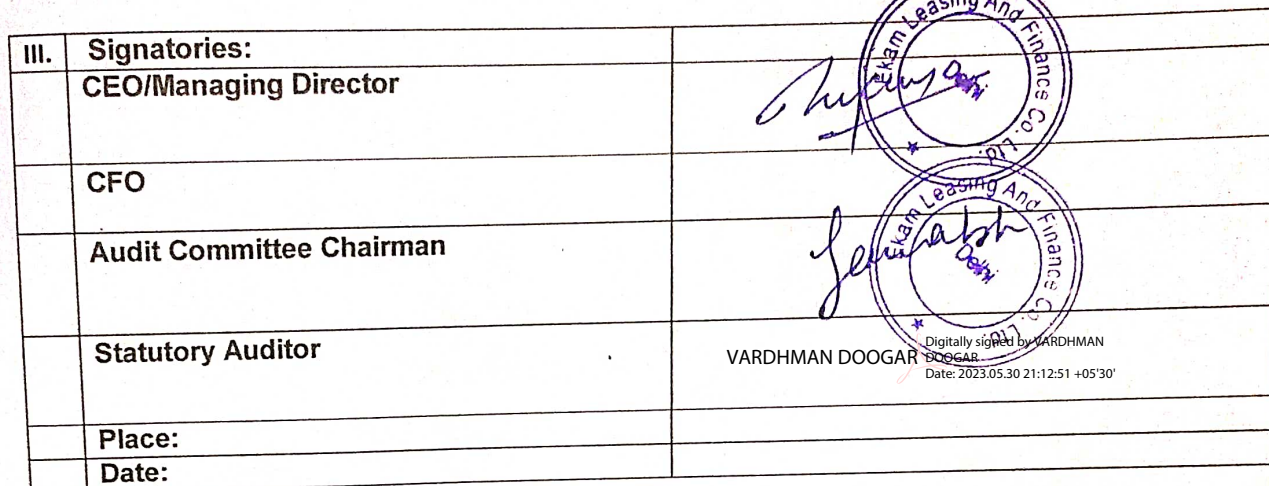 III. Signatories:
CEO/Managing Director
Ekam Leasing And Finance Co. Ltd.
Delhi
CFO
Audit Committee Chairman
Ekam Leasing And Finance Co. Ltd.
Delhi
Statutory Auditor
VARDHMAN DOOGAR
Digitally signed by VARDHMAN
DOOGAR
Date: 2023.05.30 21:12:51 +05'30'
Place:
Date: